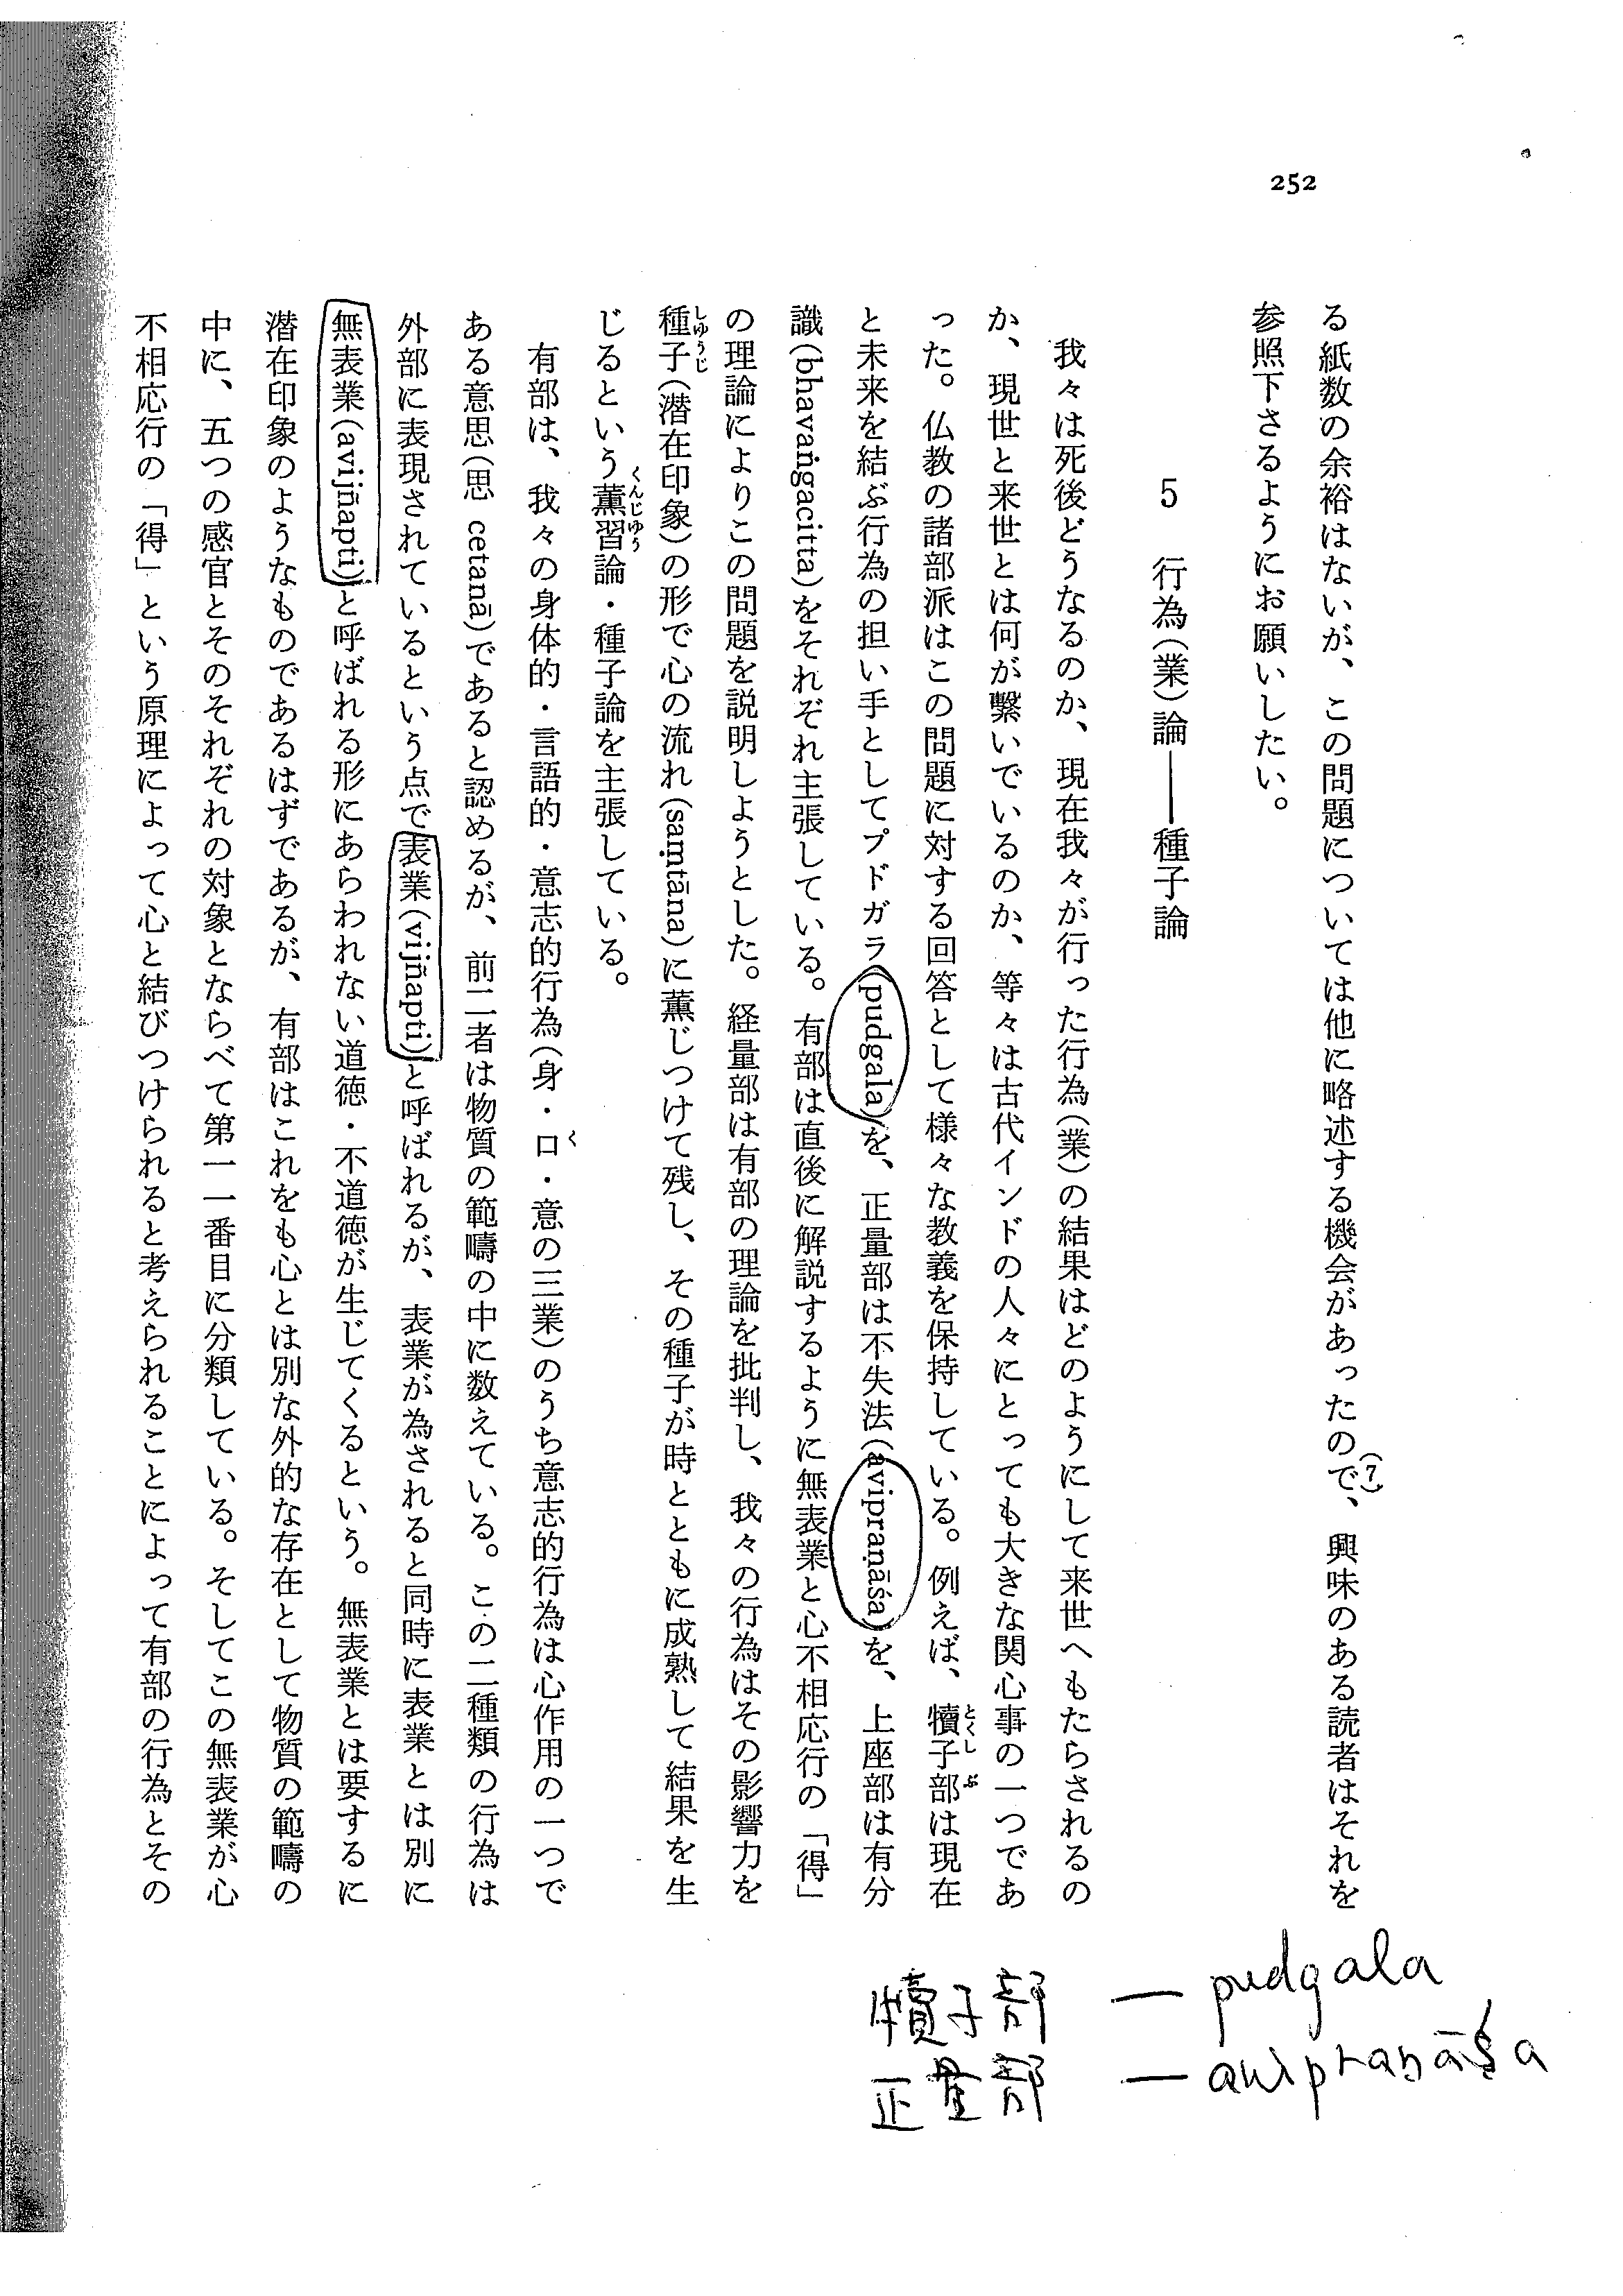 252
る紙数の余裕はないが、この問題については他に略述する機会があったので、(7)興味のある読者はそれを
参照下さるようにお願いしたい。
5 行為(業)論――種子論
我々は死後どうなるのか、現在我々が行った行為(業)の結果はどのようにして来世へもたらされるの
か、現世と来世とは何が繫いでいるのか、等々は古代インドの人々にとっても大きな関心事の一つであ
った。仏教の諸部派はこの問題に対する回答として様々な教義を保持している。例えば、犢子部は現在
と未来を結ぶ行為の担い手としてプドガラ(pudgala)を、正量部は不失法(avipraṇāśa)を、上座部は有分
識(bhavaṅgacitta)をそれぞれ主張している。有部は直後に解説するように無表業と心不相応行の「得」
の理論によりこの問題を説明しようとした。経量部は有部の理論を批判し、我々の行為はその影響力を
種子(潜在印象)の形で心の流れ(saṃtāna)に薫じつけて残し、その種子が時とともに成熟して結果を生
じるという薫習論・種子論を主張している。
有部は、我々の身体的・言語的・意志的行為(身・口・意の三業)のうち意志的行為は心作用の一つで
ある意思(思 cetanā)であると認めるが、前二者は物質の範疇の中に数えている。この二種類の行為は
外部に表現されているという点で表業(vijñapti)と呼ばれるが、表業が為されると同時に表業とは別に
無表業(avijñapti)と呼ばれる形にあらわれない道徳・不道徳が生じてくるという。無表業とは要するに
潜在印象のようなものであるはずであるが、有部はこれをも心とは別な外的な存在として物質の範疇の
中に、五つの感官とそのそれぞれの対象とならべて第一一番目に分類している。そしてこの無表業が心
不相応行の「得」という原理によって心と結びつけられると考えられることによって有部の行為とその
犢子部 — pudgala
正量部 — avipraṇāśa